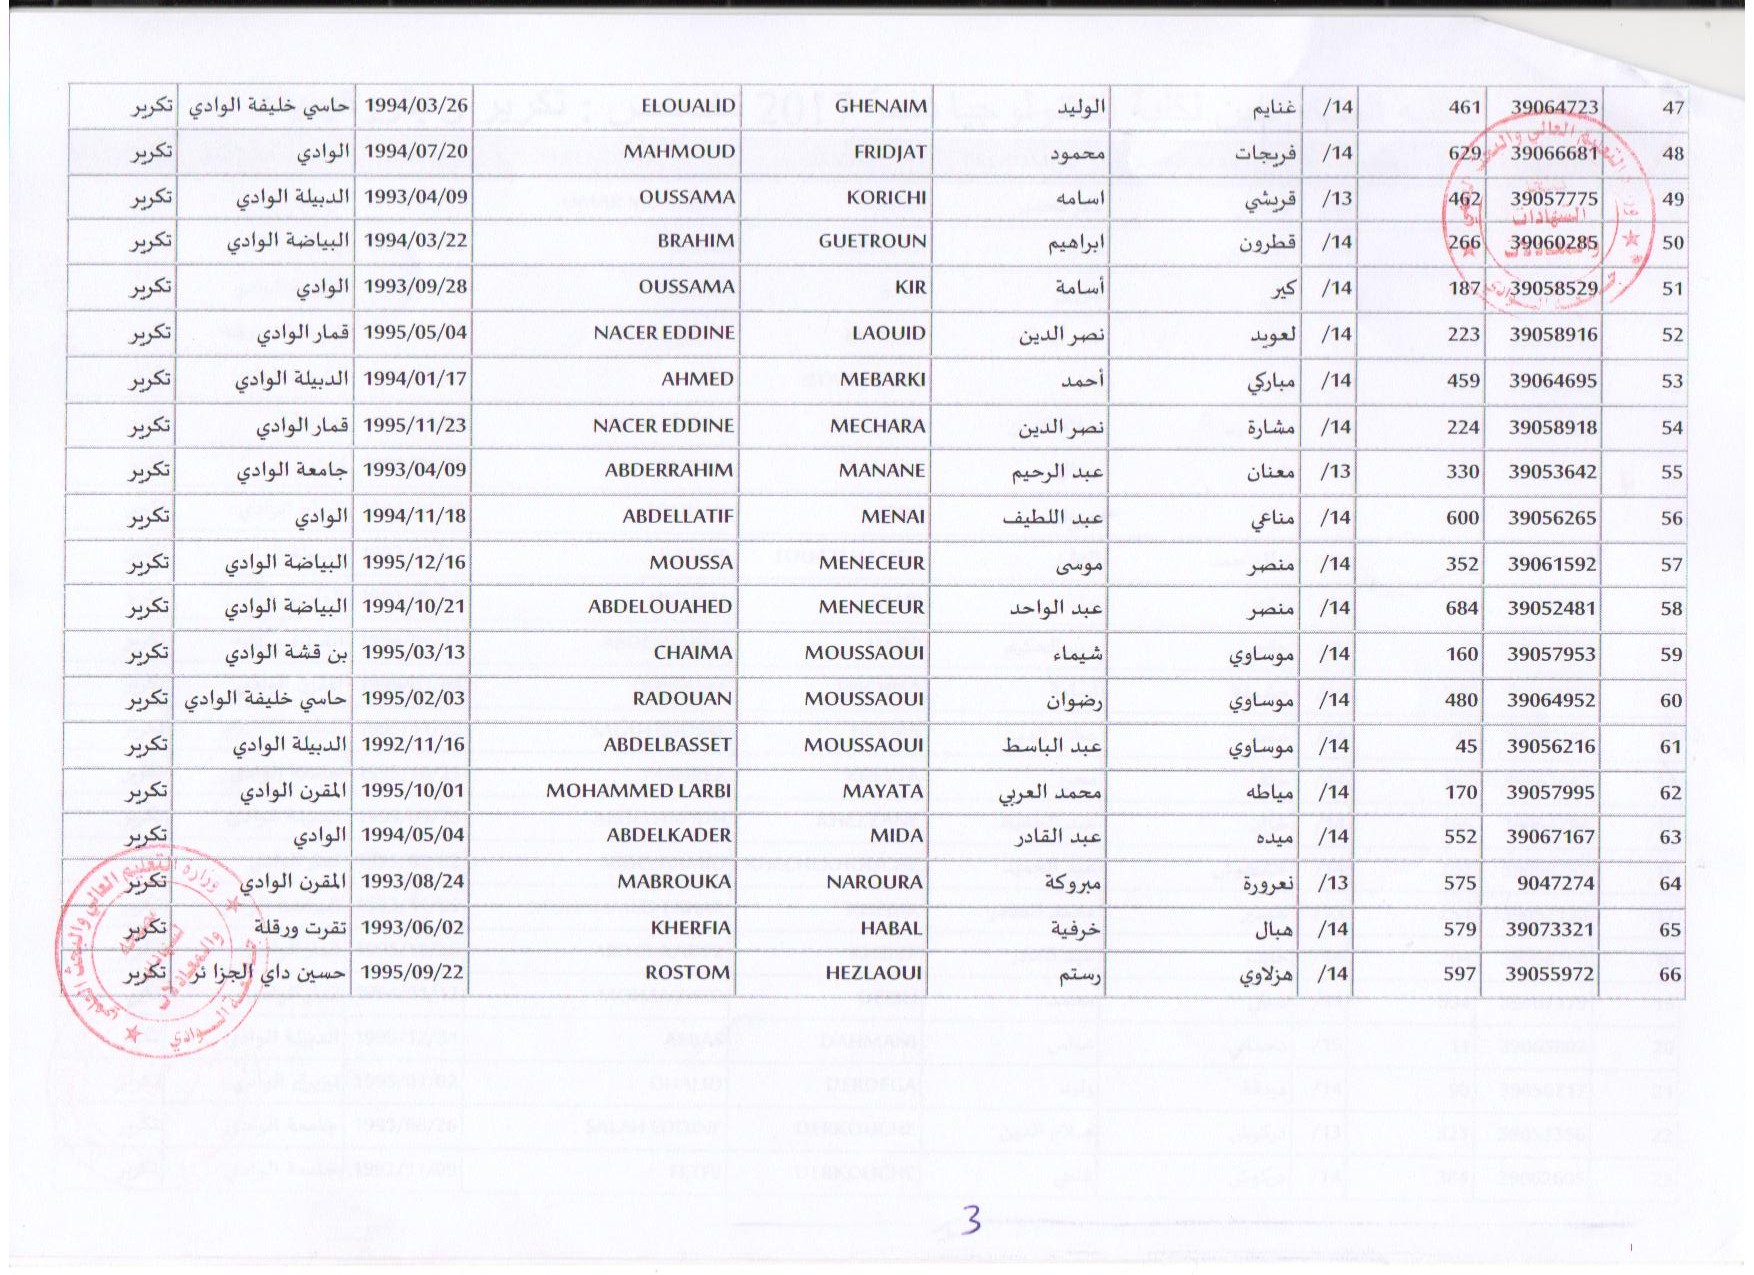 47 39064723 461 14/ غنايم الوليد GHENAIM ELOUALID 1994/03/26 حاسي خليفة الوادي تكرير
48 39066681 629 14/ فريجات محمود FRIDJAT MAHMOUD 1994/07/20 الوادي تكرير
49 39057775 462 13/ قريشي اسامه KORICHI OUSSAMA 1993/04/09 الدبيلة الوادي تكرير
50 39060285 266 14/ قطرون ابراهيم GUETROUN BRAHIM 1994/03/22 البياضة الوادي تكرير
51 39058529 187 14/ كير أسامة KIR OUSSAMA 1993/09/28 الوادي تكرير
52 39058916 223 14/ لعويد نصر الدين LAOUID NACER EDDINE 1995/05/04 قمار الوادي تكرير
53 39064695 459 14/ مباركي أحمد MEBARKI AHMED 1994/01/17 الدبيلة الوادي تكرير
54 39058918 224 14/ مشارة نصر الدين MECHARA NACER EDDINE 1995/11/23 قمار الوادي تكرير
55 39053642 330 13/ معنان عبد الرحيم MANANE ABDERRAHIM 1993/04/09 جامعة الوادي تكرير
56 39056265 600 14/ مناعي عبد اللطيف MENAI ABDELLATIF 1994/11/18 الوادي تكرير
57 39061592 352 14/ منصر موسى MENECEUR MOUSSA 1995/12/16 البياضة الوادي تكرير
58 39052481 684 14/ منصر عبد الواحد MENECEUR ABDELOUAHED 1994/10/21 البياضة الوادي تكرير
59 39057953 160 14/ موساوي شيماء MOUSSAOUI CHAIMA 1995/03/13 بن قشة الوادي تكرير
60 39064952 480 14/ موساوي رضوان MOUSSAOUI RADOUAN 1995/02/03 حاسي خليفة الوادي تكرير
61 39056216 45 14/ موساوي عبد الباسط MOUSSAOUI ABDELBASSET 1992/11/16 الدبيلة الوادي تكرير
62 39057995 170 14/ مياطه محمد العربي MAYATA MOHAMMED LARBI 1995/10/01 المقرن الوادي تكرير
63 39067167 552 14/ ميده عبد القادر MIDA ABDELKADER 1994/05/04 الوادي تكرير
64 9047274 575 13/ نعرورة مبروكة NAROURA MABROUKA 1993/08/24 المقرن الوادي تكرير
65 39073321 579 14/ هبال خرفية HABAL KHERFIA 1993/06/02 تقرت ورقلة تكرير
66 39055972 597 14/ هزلاوي رستم HEZLAOUI ROSTOM 1995/09/22 حسين داي الجزا ئر تكرير
وزارة التعليم العالي والبحث العلمي
3